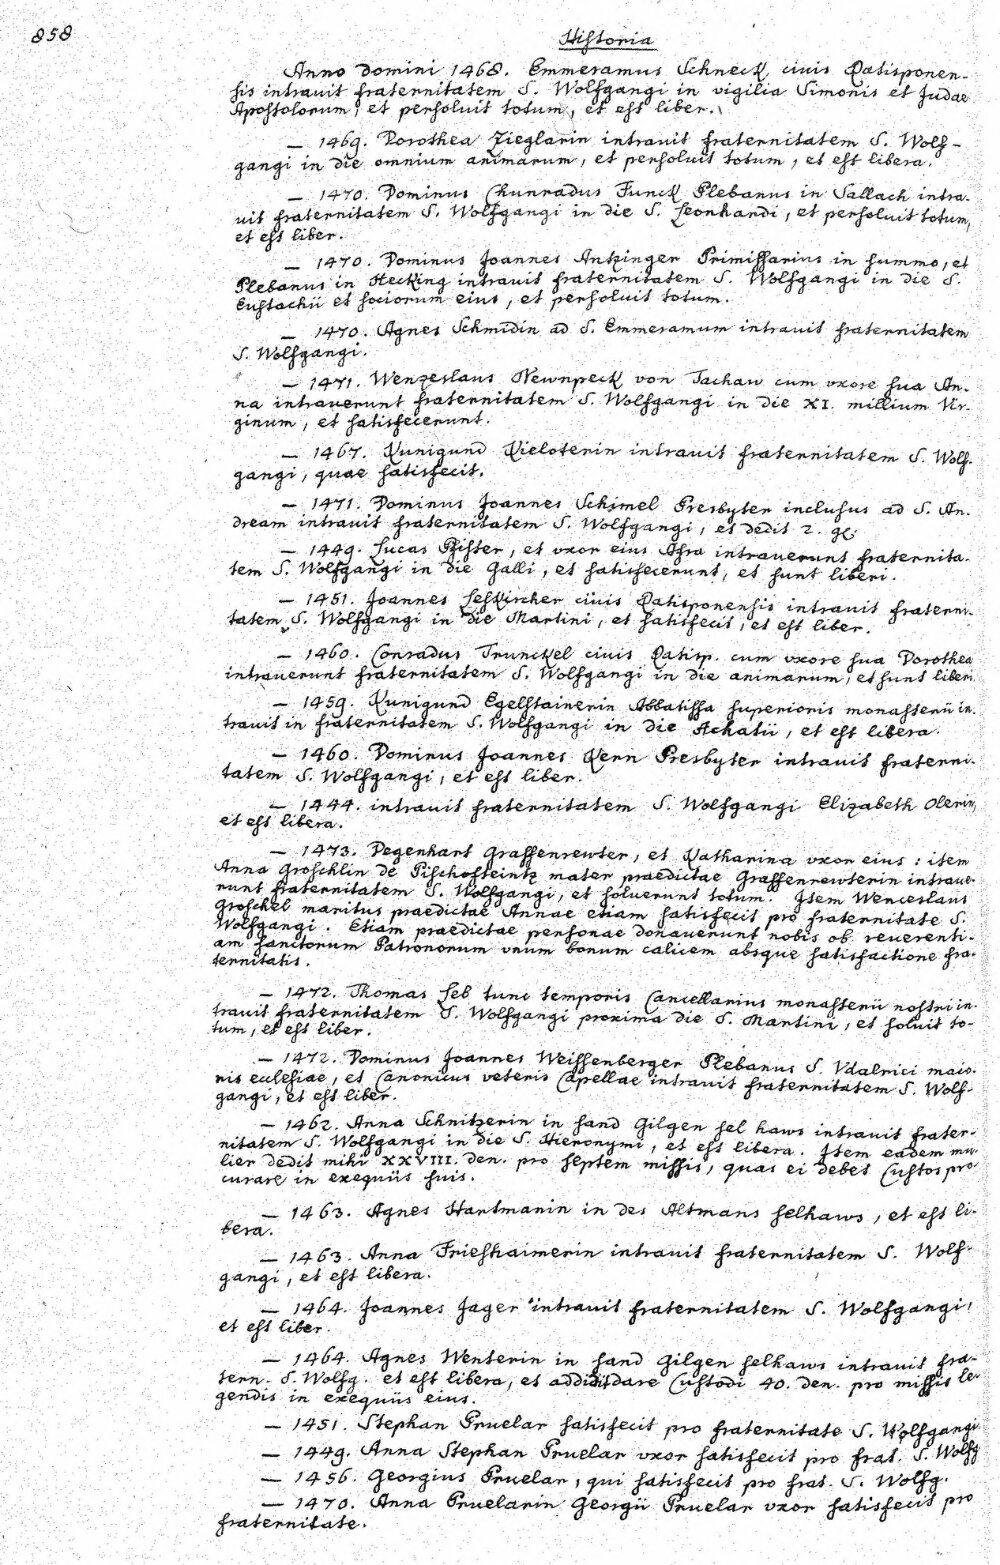 858
Historia
Anno domini 1468. Emmeramus Schneck, civis Ratisponen-
sis intravit fraternitatem S. Wolfgangi in vigilia Simonis et Judae
Apostolorum, et persoluit totum, et est liber.
— 1469. Dorothea Zieglarin intravit fraternitatem S. Wolf-
gangi in die omnium animarum, et persoluit totum, et est libera.
— 1470. Dominus Chunradus Funck Plebanus in Sallach intra-
vit fraternitatem S. Wolfgangi in die S. Leonhardi, et persoluit totum,
et est liber.
— 1470. Dominus Joannes Antzinger Primissarius in summo, et
Plebanus in Hecking intravit fraternitatem S. Wolfgangi in die S.
Eustachii et sociorum eius, et persoluit totum.
— 1470. Agnes Schmidin ad S. Emmeramum intravit fraternitatem
S. Wolfgangi.
— 1471. Wenzeslaus Newnpeck von Tachaw cum uxore sua An-
na intraverunt fraternitatem S. Wolfgangi in die XI. millium Vir-
ginum, et satisfecerunt.
— 1467. Kunigund Kieloterin intravit fraternitatem S. Wolf-
gangi, quae satisfecit.
— 1471. Dominus Joannes Schimel Presbyter inclusus ad S. An-
dream intravit fraternitatem S. Wolfgangi, et dedit 2. gl.
— 1449. Lucas Pfister, et uxor eius Afra intraverunt fraternita-
tem S. Wolfgangi in die Galli, et satisfecerunt, et sunt liberi.
— 1451. Joannes Leskircher civis Ratisponensis intravit fraterni-
tatem S. Wolfgangi in die Martini, et satisfecit, et est liber.
— 1460. Conradus Trunckel civis Ratisp. cum uxore sua Dorothea
intraverunt fraternitatem S. Wolfgangi in die animarum, et sunt liberi
— 1459. Kunigund Egelstainerin Abbatissa superioris monasterii in-
travit in fraternitatem S. Wolfgangi in die Achatii, et est libera.
— 1460. Dominus Joannes Kern Presbyter intravit fraterni-
tatem S. Wolfgangi, et est liber.
— 1444. intravit fraternitatem S. Wolfgangi Elizabeth Olerin,
et est libera.
— 1473. Degenhart Graffenrewter, et Katharina uxor eius: item
Anna Groschlin de Pischofsteintz mater praedictae Graffenrewterin intrave-
runt fraternitatem S. Wolfgangi, et soluerunt totum. Item Wenceslaus
Groschel maritus praedictae Annae etiam satisfecit pro fraternitate S.
Wolfgangi. Etiam praedictae personae donaverunt nobis ob reverenti-
am sanctorum Patronorum unum bonum calicem absque satisfactione fra-
ternitatis.
— 1472. Thomas Leb tunc temporis Cancellarius monasterii nostri in-
travit fraternitatem S. Wolfgangi proxima die S. Martini, et soluit to-
tum, et est liber.
— 1472. Dominus Joannes Weissenberger Plebanus S. Vdalrici maio-
ris ecclesiae, et Canonicus veteris Capellae intravit fraternitatem S. Wolf-
gangi, et est liber.
— 1462. Anna Schnitzerin in sand Gilgen sel haws intravit frater-
nitatem S. Wolfgangi in die S. Hieronymi, et est libera. Item eadem mu-
lier dedit mihi XXVIII. den. pro septem missis, quas ei debet Custos pro-
curare in exequiis suis.
— 1463. Agnes Hartmanin in des Altmans selhaws, et est li-
bera.
— 1463. Anna Frieshaimerin intravit fraternitatem S. Wolf-
gangi, et est libera.
— 1464. Joannes Jager intravit fraternitatem S. Wolfgangi,
et est liber.
— 1464. Agnes Wenterin in sand Gilgen selhaws intravit fra-
tern. S. Wolfg. et est libera, et addidit dare Custodi 40. den. pro missis le-
gendis in exequiis eius.
— 1451. Stephan Pruelar satisfecit pro fraternitate S. Wolfgangi
— 1449. Anna Stephan Pruelar uxor satisfecit pro frat. S. Wolfg
— 1456. Georgius Pruelar, qui satisfecit pro frat. S. Wolfg.
— 1470. Anna Pruelarin Georgii Pruelar uxor satisfecit pro
fraternitate.